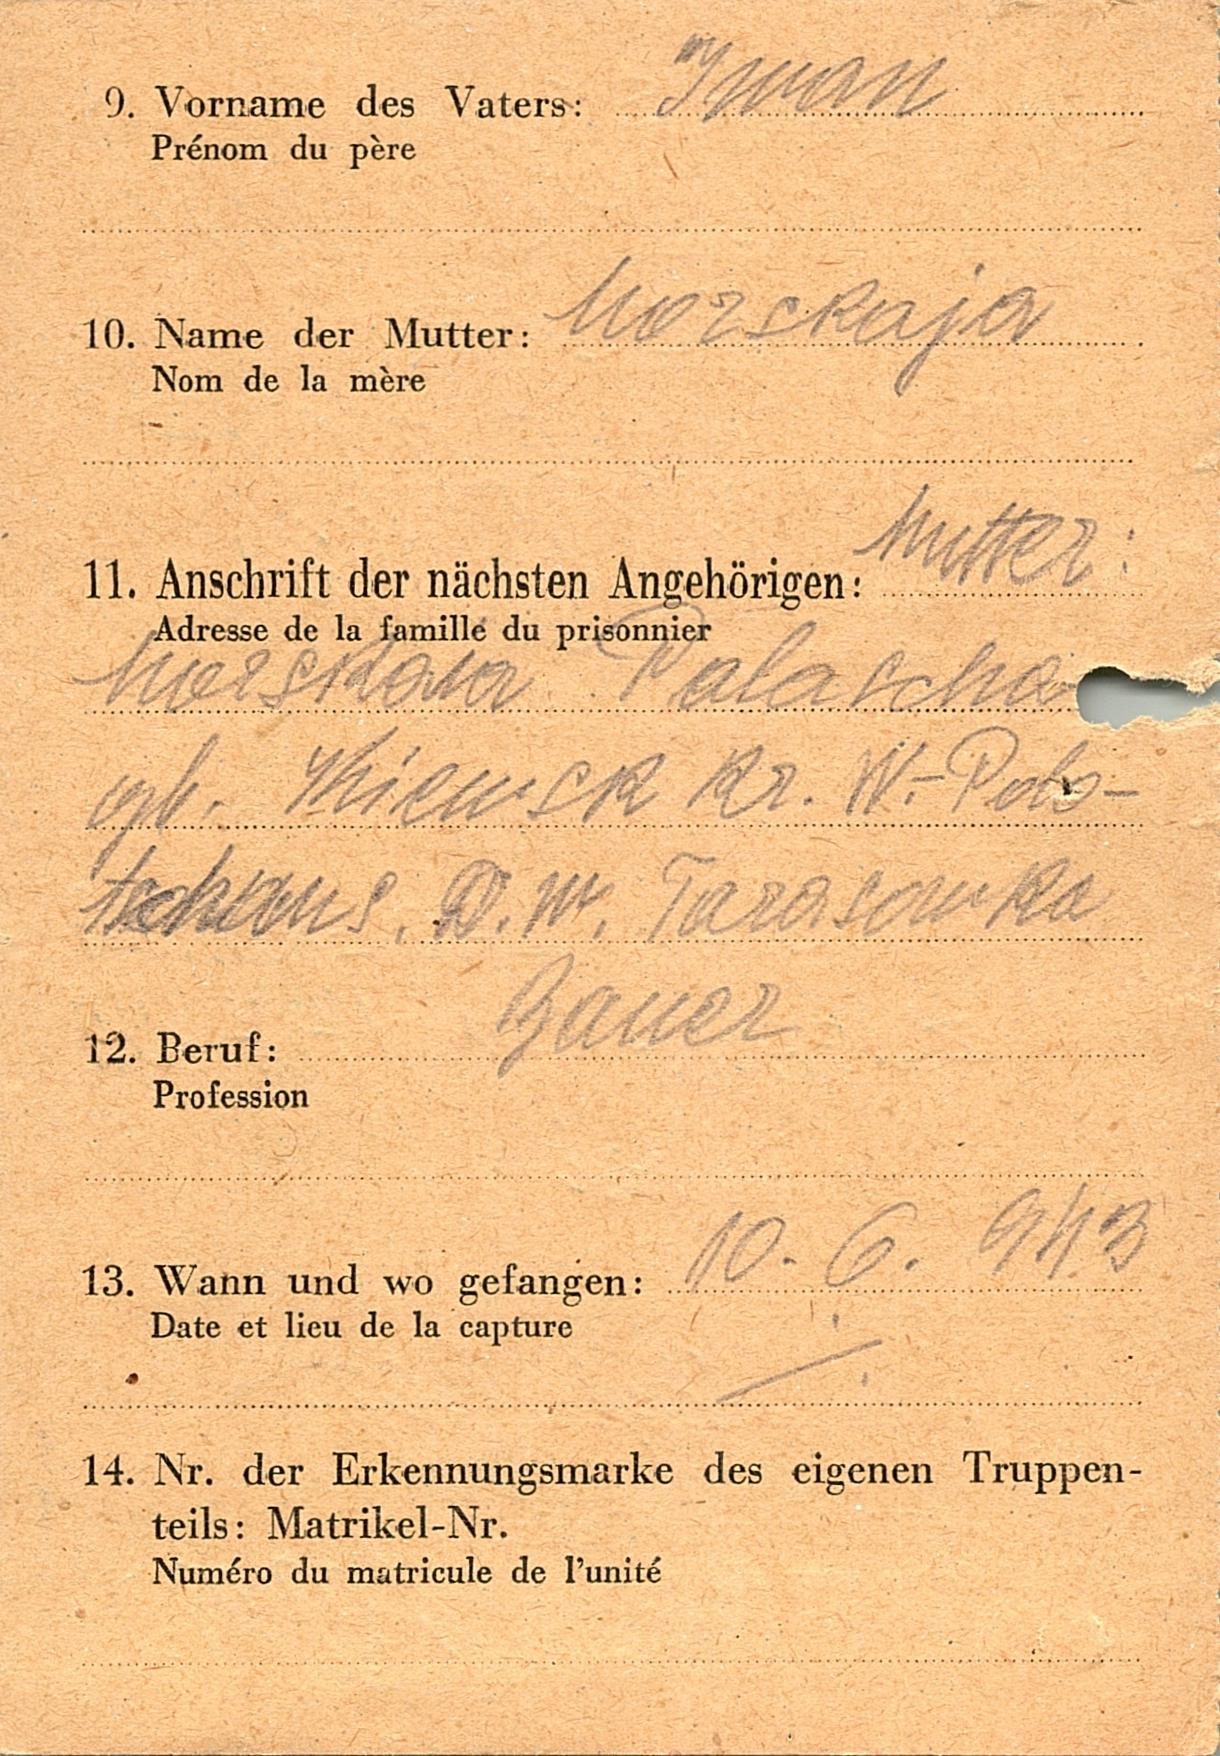 9. Vorname des Vaters: Iwan
Prénom du père
10. Name der Mutter: Morskaja
Nom de la mère
11. Anschrift der nächsten Angehörigen: Mutter:
Adresse de la famille du prisonnier
Morskaja Palascha
gb. Kiewsk Kr. W.-Polo-
D. W. Tarasowka
12. Beruf: Bauer
Profession
13. Wann und wo gefangen: 10. 6. 943
Date et lieu de la capture
14. Nr. der Erkennungsmarke des eigenen Truppen-
teils: Matrikel-Nr.
Numéro du matricule de l'unité